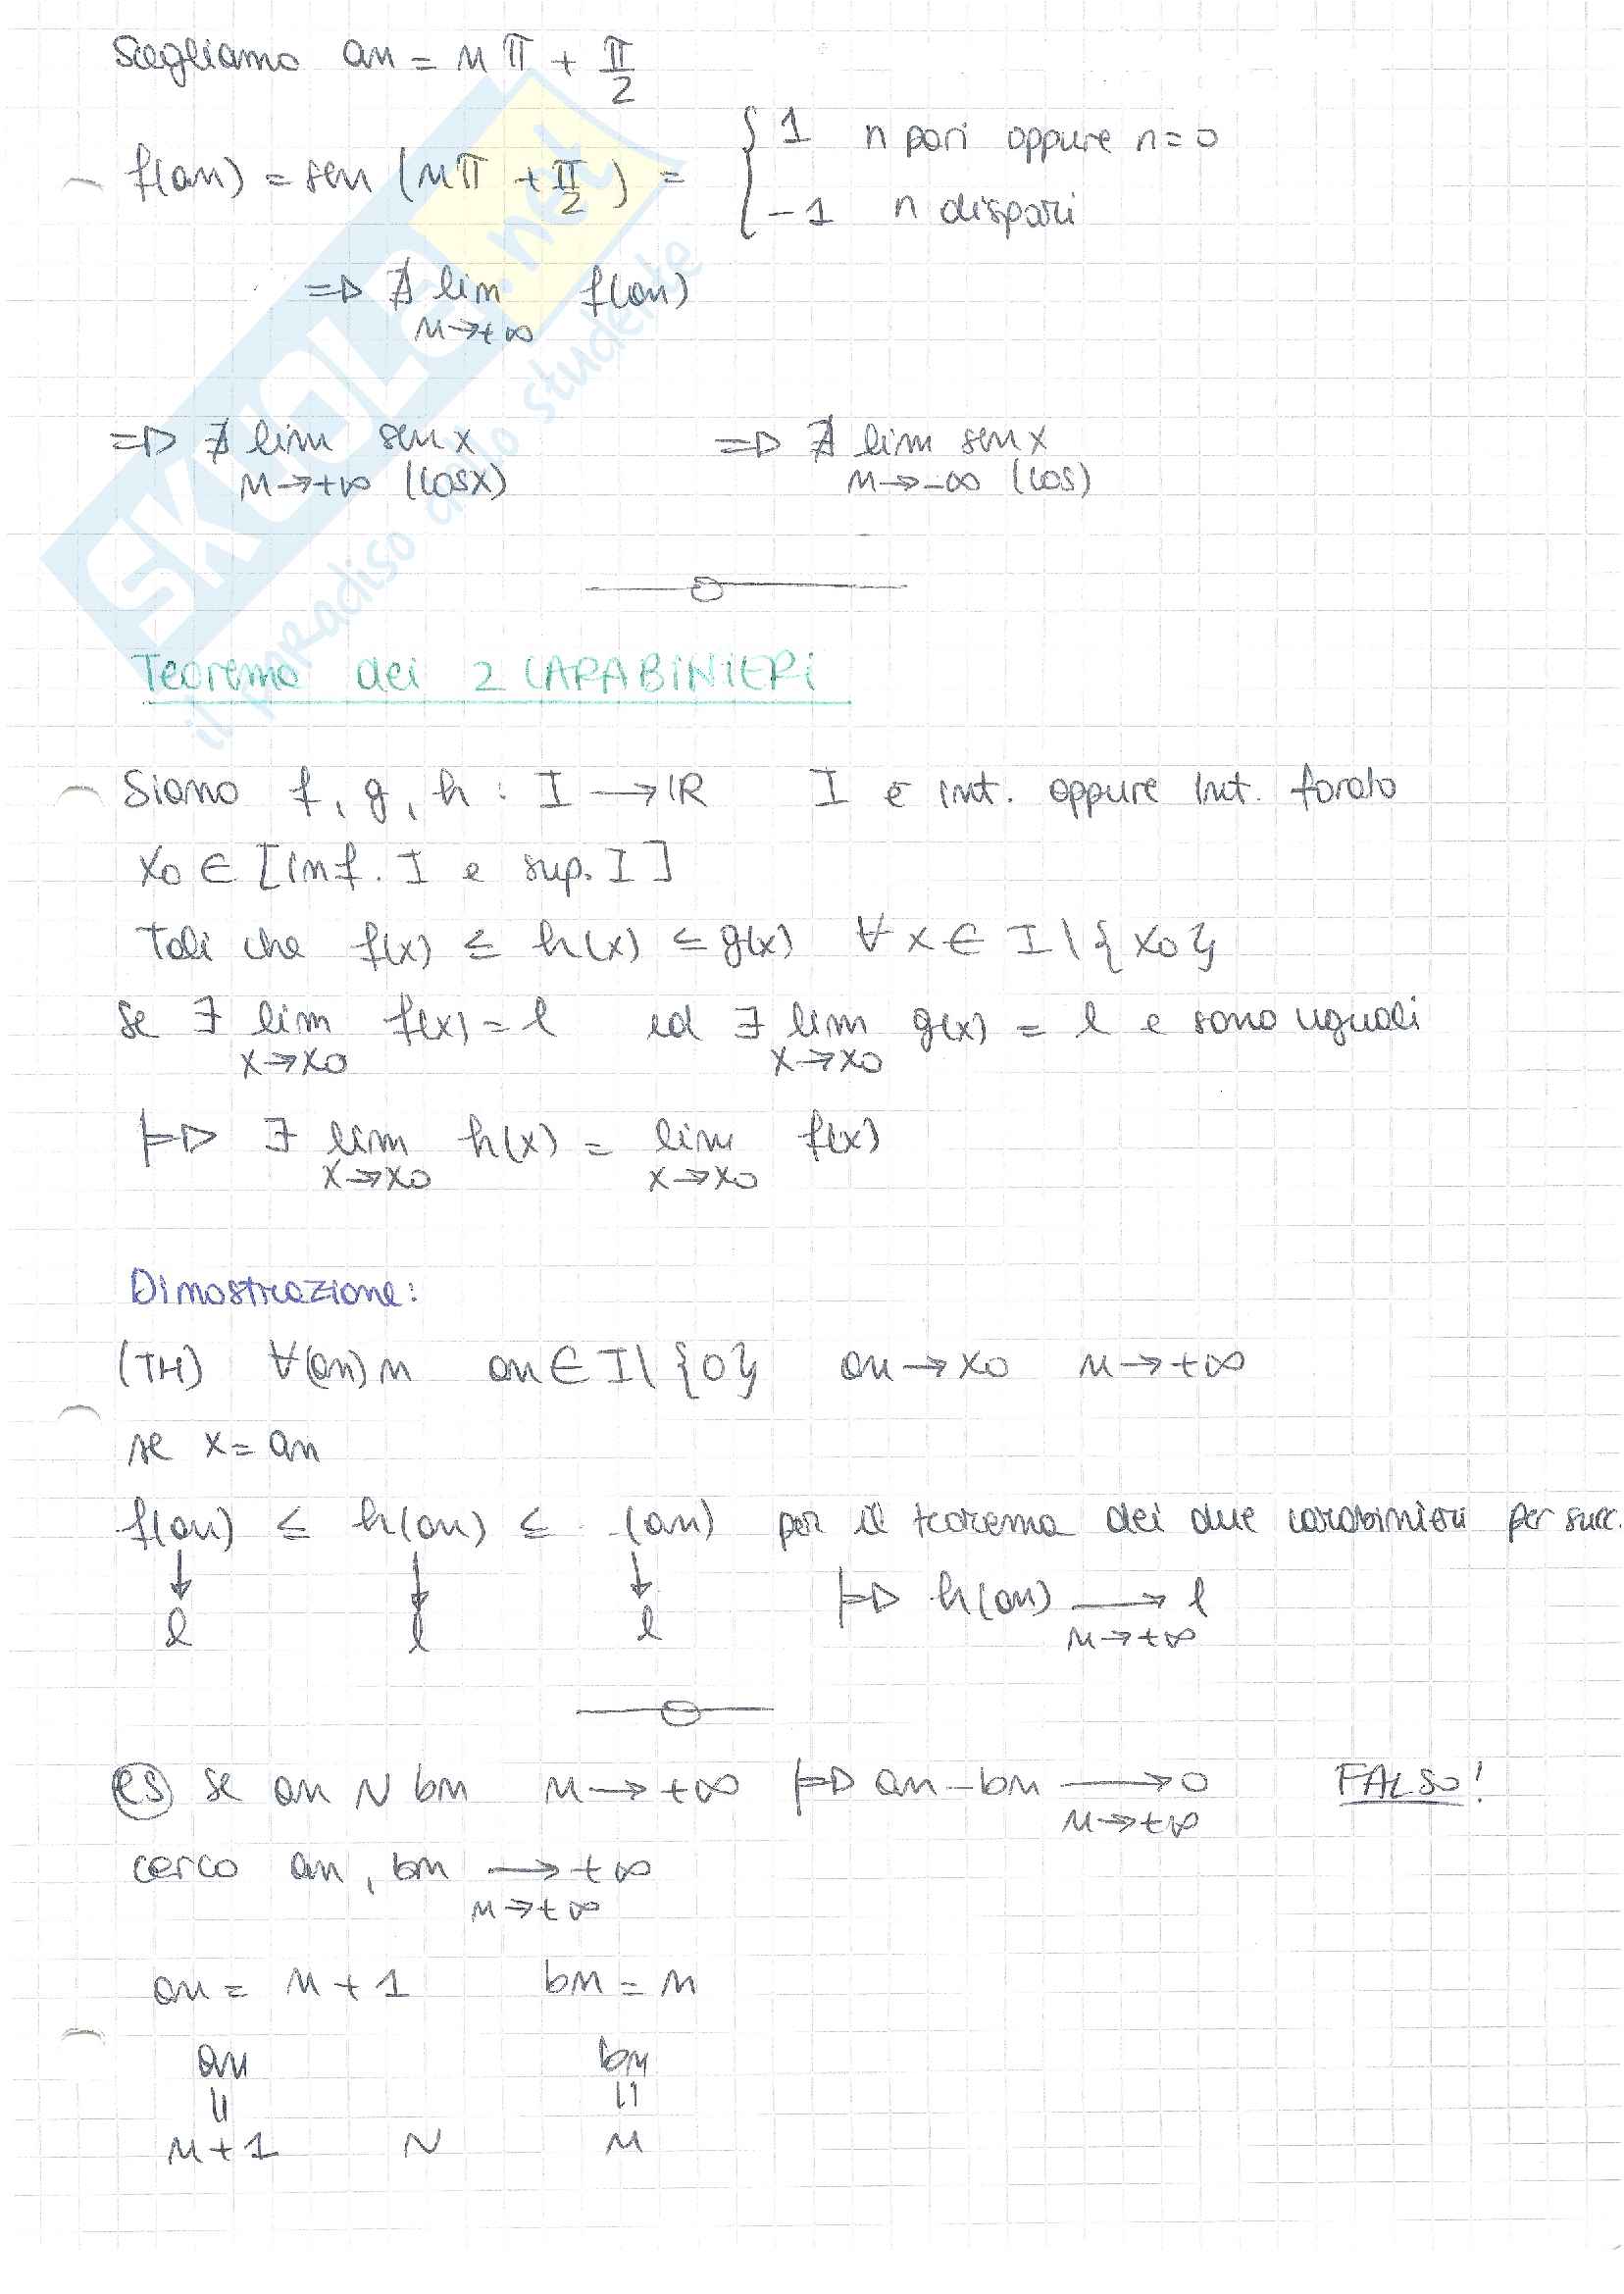 Scegliamo an = nπ + π/2
f(an) = sen (nπ + π/2) = { 1 n pari oppure n = 0
-1 n dispari
=> ∄ lim f(an)
n→+∞
=> ∄ lim sen x => ∄ lim sen x
n→+∞ (cosx) n→-∞ (cos)
Teorema dei 2 CARABINIERI
Siano f, g, h : I → IR I è int. oppure int. forato
x0 ∈ [inf. I e sup. I]
Tali che f(x) ≤ h(x) ≤ g(x) ∀ x ∈ I \ {x0}
se ∃ lim f(x) = l ed ∃ lim g(x) = l e sono uguali
x→x0 x→x0
|=> ∃ lim h(x) = lim f(x)
x→x0 x→x0
Dimostrazione:
(TH) ∀(an)n an ∈ I \ {0} an → x0 n → +∞
se x = an
f(an) ≤ h(an) ≤ (an) per il teorema dei due carabinieri per succ.
↓ ↓ ↓ |=> h(an) → l
l l l n→+∞
es se an ~ bn n → +∞ |=> an - bn → 0 FALSO!
n→+∞
cerco an, bn → +∞
n→+∞
an = n + 1 bn = n
an bn
= =
n + 1 ~ n
SKUOLA.net
il paradiso dello studente